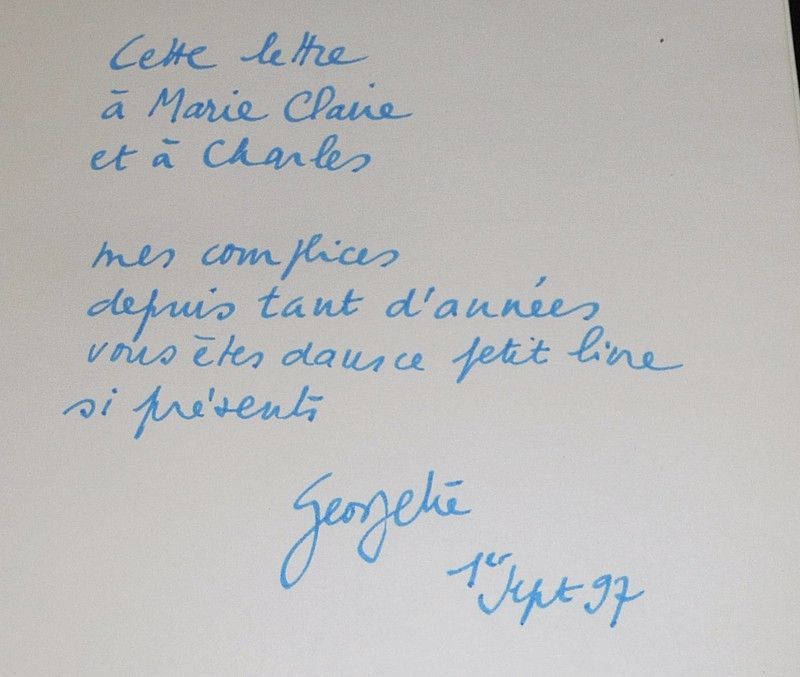 Cette lettre
à Marie Claire
et à Charles
mes complices
depuis tant d'années
vous êtes dans ce petit livre
si présents
Georgette
1er Sept 97